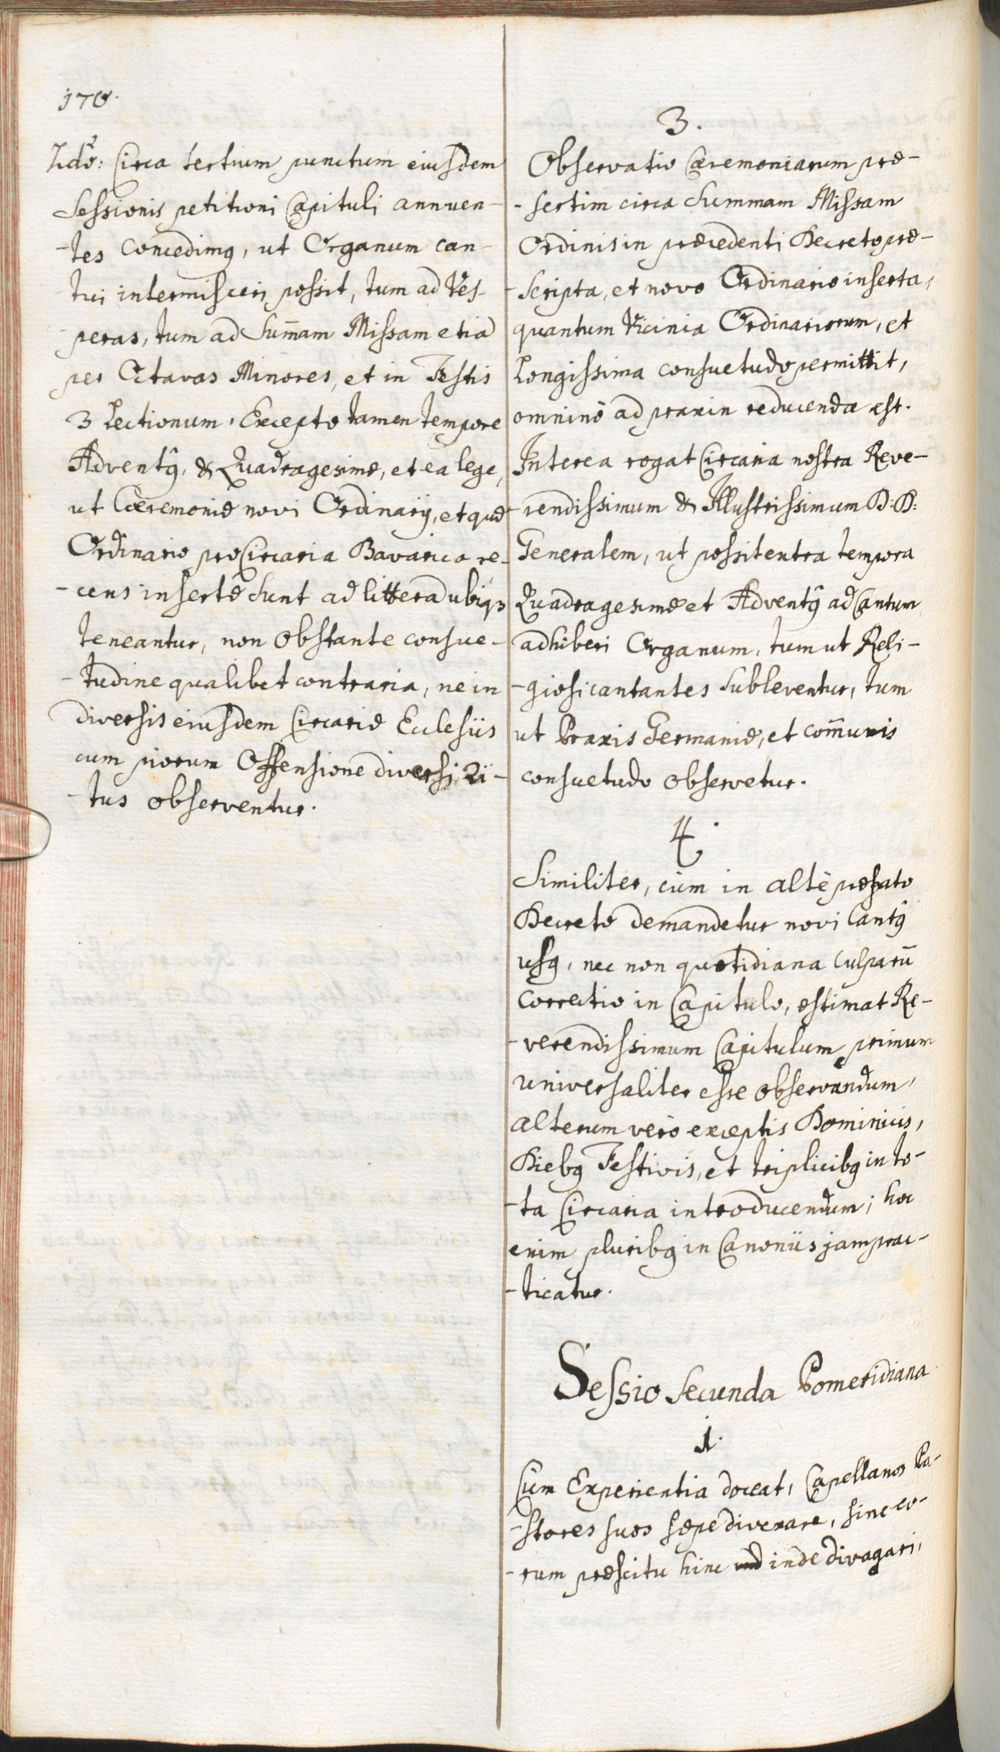 170.
2dò: Circa tertium punctum eiusdem
Sessionis petitioni Capituli annuen-
-tes concedimq, ut Organum can-
-tui intermisceri possit, tum ad Ves-
-peras, tum ad Sum̄am Missam etiā
per Octavas Minores, et in Festis
3 Lectionum. Excepto tamen tempore
Adventq̂, & Quadragesimæ, et ea lege,
ut Cæremoniæ novi Ordinarij, et quæ
Ordinario pro Circaria Bavarica re-
-cens insertæ sunt ad litterā ubiq3
teneantur, non obstante consue-
-tudine qualibet contraria, ne in
diversis eiusdem Circariæ Ecclesiis
cum piorum Offensione diversi Ri-
-tus observentur.
3.
Observatio Cæremoniarum præ-
-sertim circa Summam Missam
Ordinis in præcedenti Decreto præ-
-scripta, et novo Ordinario inserta,
quantum Vicinia Ordinariorum, et
Longissima consuetudo permittit,
omninò ad praxin reducenda est.
Interea rogat Circaria nostra Reve-
-rendissimum & Illustrissimum D. D:
Generalem, ut possit extra tempora
Quadragesimæ et Adventq̂ ad Cantum
adhiberi Organum, tum ut Reli-
-giosi cantantes subleventur, tum
ut Praxis Germaniæ, et com̄unis
consuetudo observetur.
4.
Similiter, cùm in altè præfato
Decreto demandetur novi Cantq̂
usq, nec non quotidiana Culparū
correctio in Capitulo, æstimat Re-
-verendissimum Capitulum primum
universaliter esse observandum,
alterum verò exceptis Dominicis,
Diebq Festivis, et triplicibq in to-
-ta Circaria introducendum; hoc
enim pluribq in Canoniis jam prac-
-ticatur.
Sessio secunda Pomeridiana
1.
Cùm Experientia doceat, Capellanos Pa-
-stores suos sæpe divexare, sine eo-
-rum præscitu hinc inde divagari,